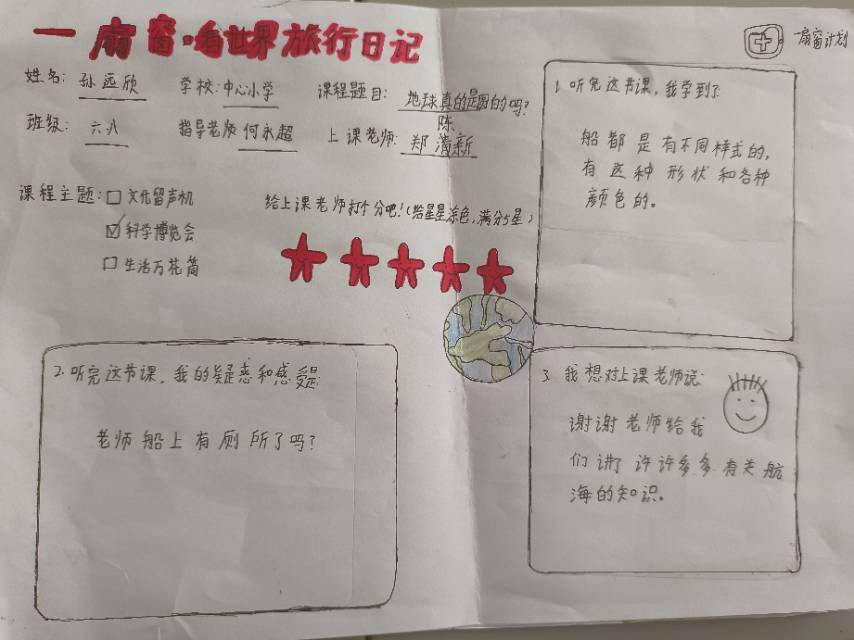 一扇窗·看世界旅行日记
一扇窗计划
姓名：孙远欣 学校：中心小学 课程题目：地球真的是圆的吗？
班级：六八 指导老师 何永超 上课老师：郑清新
陈、
课程主题：
文化留声机
科学博览会
生活万花筒
给上课老师打个分吧！（给星星涂色，满分5星）
1. 听完这节课，我学到了
船都是有不同样式的，
有这种形状和各种
颜色的。
2. 听完这节课，我的疑惑和感受是：
老师船上有厕所了吗？
3. 我想对上课老师说：
谢谢老师给我
们讲了许许多多有关航
海的知识。